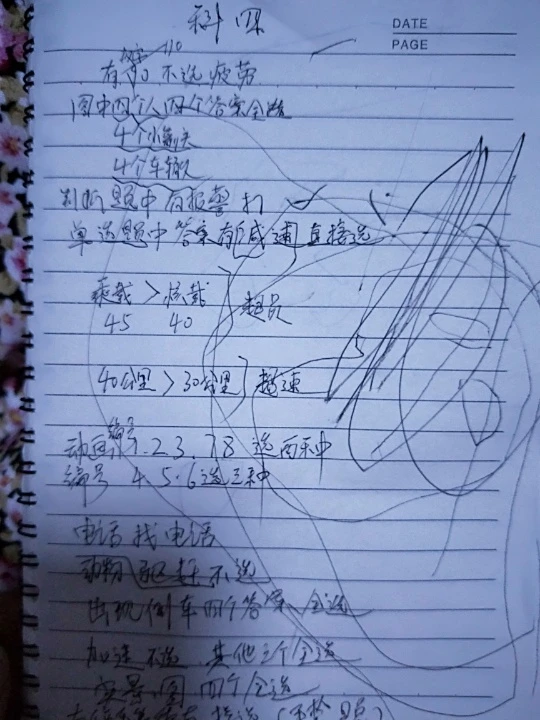 科四
DATE
PAGE
有 110 不选疲劳
图中四个人四个答案全选
4个小箭头
4个车辆
判断题中有报警打✓
单选题中答案有减速直接选
乘载 > 核载 超员
45 40
40公里 > 30公里 超速
动画编号1.2.3.7.8 选两种
编号 4.5.6选三种
电话找电话
动物 不选
出现倒车四个答案全选
加速不选 其他三个全选
实景图四个全选